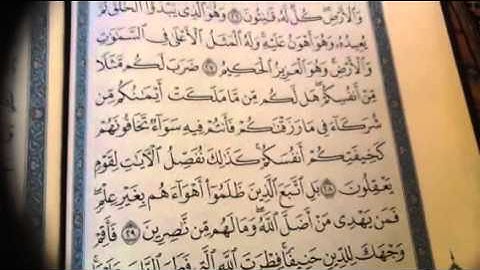 وَٱلْأَرْضِ كُلٌّ لَّهُۥ قَٰنِتُونَ ٢٦ وَهُوَ ٱلَّذِى يَبْدَؤُا۟ ٱلْخَلْقَ ثُمَّ
يُعِيدُهُۥ وَهُوَ أَهْوَنُ عَلَيْهِ وَلَهُ ٱلْمَثَلُ ٱلْأَعْلَىٰ فِى ٱلسَّمَٰوَٰتِ
وَٱلْأَرْضِ وَهُوَ ٱلْعَزِيزُ ٱلْحَكِيمُ ٢٧ ضَرَبَ لَكُم مَّثَلًا
مِّنْ أَنفُسِكُمْ هَل لَّكُم مِّن مَّا مَلَكَتْ أَيْمَٰنُكُم مِّن
شُرَكَآءَ فِى مَا رَزَقْنَٰكُمْ فَأَنتُمْ فِيهِ سَوَآءٌ تَخَافُونَهُمْ
كَخِيفَتِكُمْ أَنفُسَكُمْ كَذَٰلِكَ نُفَصِّلُ ٱلْءَايَٰتِ لِقَوْمٍ
يَعْقِلُونَ ٢٨ بَلِ ٱتَّبَعَ ٱلَّذِينَ ظَلَمُوٓا۟ أَهْوَآءَهُم بِغَيْرِ عِلْمٍ
فَمَن يَهْدِى مَنْ أَضَلَّ ٱللَّهُ وَمَا لَهُم مِّن نَّٰصِرِينَ ٢٩ فَأَقِمْ
وَجْهَكَ لِلدِّينِ حَنِيفًا فِطْرَتَ ٱللَّهِ ٱلَّتِى فَطَرَ ٱلنَّاسَ عَلَيْهَا